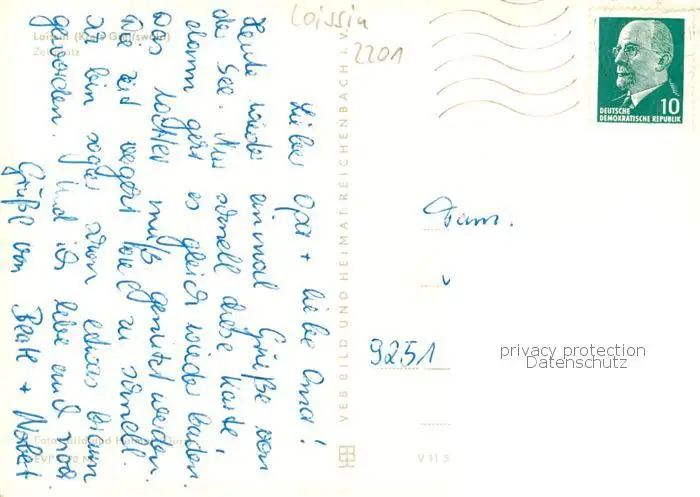 Loissin
2201
Loissin (Kreis Greifswald)
Zeltplatz
DEUTSCHE
DEMOKRATISCHE REPUBLIK
10
Lieber Opa + liebe Oma!
Heute wieder einmal Grüße von
der See. Nur schnell diese Karte,
dann geht es gleich wieder baden
Das muß genutzt werden.
Die Zeit vergeht viel zu schnell.
Ich bin sogar schon etwas braun
geworden. Und ich lebe auch noch
Grüße von Beate +
VEB BILD UND HEIMAT REICHENBACH i. V.
Fam.
9251
privacy protection
Datenschutz
Foto: Bild und Heimat
V 11 5